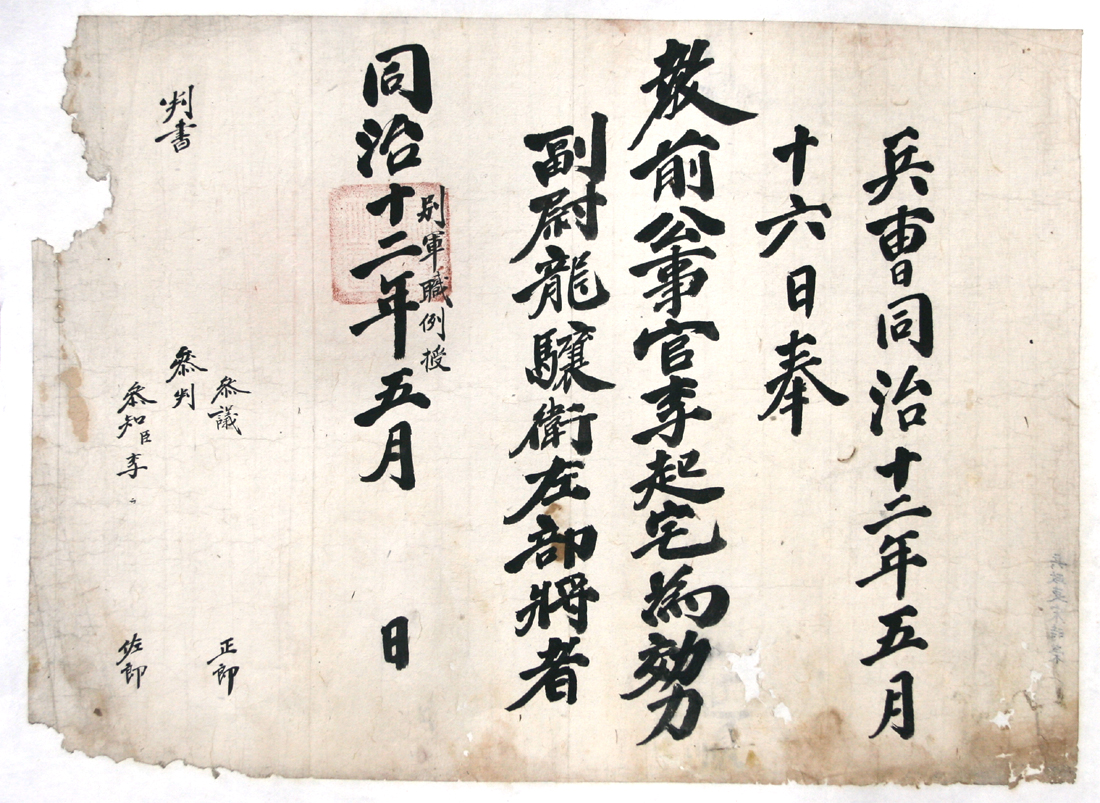 兵曹同治十二年五月
十六日奉
教前公事官李起宅為効力
副尉龍驤衛左部將者
別軍職例授
同治十二年五月 日
判書
參議
參判
參知臣李
正郎
佐郎